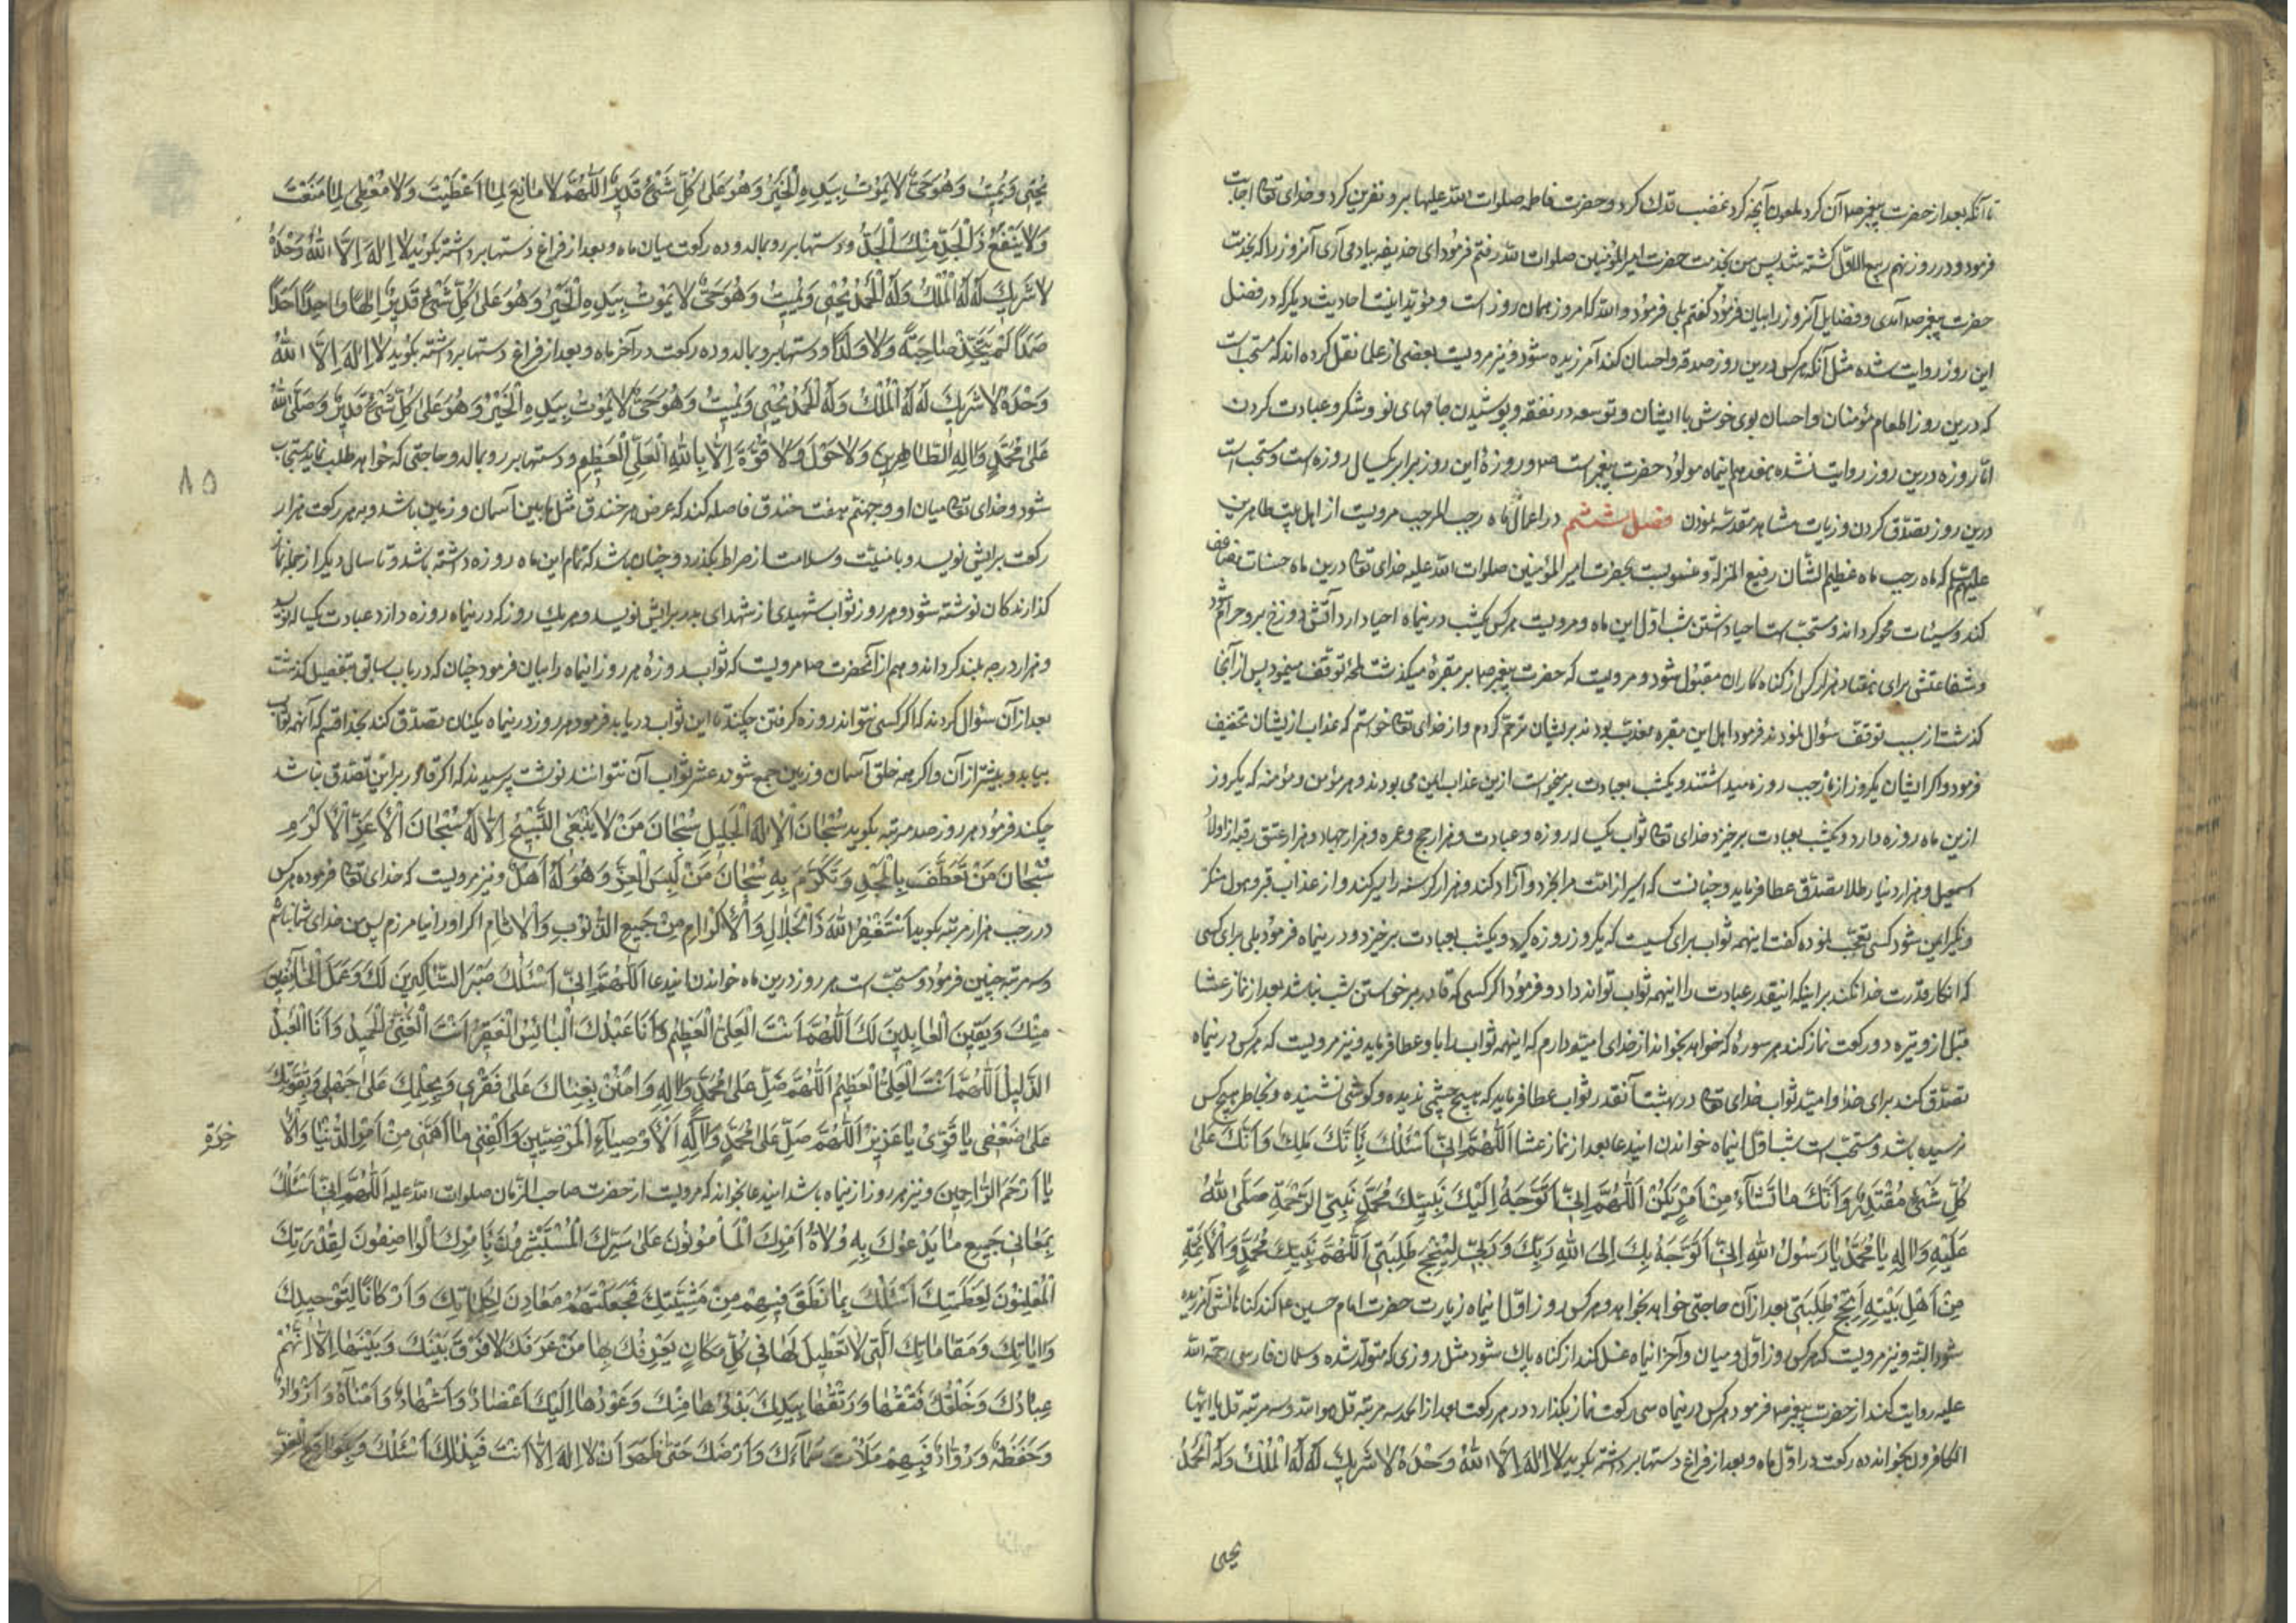 تا آنکه بعد از حضرت پیغمبر ص آن کرد ملعون آنچه کرد غضب فدک کرد و حضرت فاطمه صلوات الله علیها بر و نفرین کرد و خدای تعا اجابت
فرمود و در روز نهم ربیع الاول کشته شد پس من بخدمت حضرت امیر المؤمنین صلوات الله رفتم فرمود ای حذیفه بیاد می آری آنروز را که بخدمت
حضرت پیغمبر ص آمدی و فضایل آنروز را بیان فرمود گفتم بلی فرمود والله که امروز همان روز است و مؤید اینست احادیث دیگر که در فضل
این روز روایت شده مثل آنکه هر کس درین روز صدقه و احسان کند آمرزیده شود و نیز مرویست بعضی از علما نقل کرده اند که مستحب است
که درین روز اطعام مؤمنان و احسان بوی خوش با ایشان و توسعه در نفقه و پوشیدن جامهای نو و شکر و عبادت کردن
اما روزه درین روز روایت نشده هفدهم اینماه مولود حضرت پیغمبر است ص و روزهٔ این روز برابر یکسال روزه است و مستحب است
درین روز تصدق کردن و زیارت مشاهد مقدسه نمودن فصل ششم در اعمال ماه رجب المرجب مرویست از اهل بیت طاهرین
علیهم که ماه رجب ماه عظیم الشان رفیع المنزلة و منسوبست بحضرت امیر المؤمنین صلوات الله علیه خدای تعا درین ماه حسنات مضاعف
کند و سیئات محو گرداند و مستحب است احیا داشتن شب اول این ماه و مرویست هر کس یکشب درینماه احیا دارد آتش دوزخ برو حرام شود
و شفاعتش برای هفتاد هزار کس از گناه کاران مقبول شود و مرویست که حضرت پیغمبر ص بر مقبرهٔ میگذشت لمحهٔ توقف مینمود پس از آنجا
گذشت از سبب توقف سؤال نمودند فرمود اهل این مقبره معذب بودند بریشان ترحم کردم و از خدای تعا خواستم که عذاب ازیشان تخفیف
فرمود و اگر ایشان یکروز از ماه رجب روزه میداشتند و یکشب بعبادت برمیخواست ازین عذاب ایمن می بودند و هر مؤمن و مؤمنه که یکروز
ازین ماه روزه دارد و یکشب بعبادت برخیزد خدای تعا ثواب یکساله روزه و عبادت و هزار حج و عمره و هزار جهاد و هزار عتق رقبه از اولاد
اسمعیل و هزار دینار طلا تصدق عطا فرماید و چنانست که اسیر از امت مرا بخرد و آزاد کند و هزار گرسنه را سیر کند و از عذاب قبر و هول منکر
و نکیر ایمن شود کسی تعجب نموده گفت اینهمه ثواب برای کسیست که یکروز روزه گیرد و یکشب بعبادت برخیزد و درینماه فرمود بلی برای کسی
که انکار قدرت خدا نکند بر اینکه اینقدر عبادت را اینهمه ثواب تواند داد و فرمود اگر کسی که قادر بر خواستن شب نباشد بعد از نماز عشا
قبل از وتیره دو رکعت نماز کند هر سورهٔ که خواهد بخواند از خدای امیدوارم که اینهمه ثواب را باو عطا فرماید و نیز مرویست که هر کس درینماه
تصدق کند برای خدا و امید ثواب خدای تعا در بهشت آنقدر ثواب عطا فرماید که هیچ چشمی ندیده و گوشی نشنیده و بخاطر هیچ کس
نرسیده باشد و مستحب است شب اول اینماه خواندن ایندعا بعد از نماز عشا اَللّٰهُمَّ اِنّی اَسْئَلُكَ بِاَنَّكَ مَلِكٌ وَاَنَّكَ عَلیٰ
كُلِّ شَیْءٍ مُقْتَدِرٌ وَاَنَّكَ مٰا تَشٰآءُ مِنْ اَمْرٍ یَكُنْ اَللّٰهُمَّ اِنّی اَتَوَجَّهُ اِلَیْكَ بِنَبِیِّكَ مُحَمَّدٍ نَبِیِّ الرَّحْمَةِ صَلَّی اللهُ
عَلَیْهِ وَاٰلِهِ یٰا مُحَمَّدُ یٰا رَسُولَ اللهِ اِنّی اَتَوَجَّهُ بِكَ اِلَی اللهِ رَبِّكَ وَرَبّی لِیُنْجِحَ طَلِبَتی اَللّٰهُمَّ بِنَبِیِّكَ مُحَمَّدٍ وَالْاَئِمَّةِ
مِنْ اَهْلِ بَیْتِهِ اَنْجِحْ طَلِبَتی بعد از آن حاجتی خواهد بخواهد و هر کس روز اول اینماه زیارت حضرت امام حسین ع کند گناهانش آمرزیده
شود البته و نیز مرویست که هر کس روز اول و میان و آخر اینماه غسل کند از گناه پاک شود مثل روزی که متولد شده و سلمان فارسی رحمة الله
علیه روایت کند از حضرت پیغمبر ص فرمود هر کس درینماه سی رکعت نماز بگذارد در هر رکعت بعد از الحمد سه مرتبه قل هو الله و سه مرتبه قل یا ایها
الکافرون بخواند ده رکعت در اول ماه و بعد از فراغ دستها برداشته بگوید لٰا اِلٰهَ اِلَّا اللهُ وَحْدَهُ لٰا شَریكَ لَهُ لَهُ الْمُلْكُ وَلَهُ الْحَمْدُ
یحیی
یُحْیی وَیُمیتُ وَهُوَ حَیٌّ لٰا یَمُوتُ بِیَدِهِ الْخَیْرُ وَهُوَ عَلیٰ كُلِّ شَیْءٍ قَدیرٌ اَللّٰهُمَّ لٰا مٰانِعَ لِمٰا اَعْطَیْتَ وَلٰا مُعْطِیَ لِمٰا مَنَعْتَ
وَلٰا یَنْفَعُ ذَا الْجَدِّ مِنْكَ الْجَدُّ و دستها بر رو بمالد و ده رکعت میان ماه و بعد از فراغ دستها برداشته بگوید لٰا اِلٰهَ اِلَّا اللهُ وَحْدَهُ
لٰا شَریكَ لَهُ لَهُ الْمُلْكُ وَلَهُ الْحَمْدُ یُحْیی وَیُمیتُ وَهُوَ حَیٌّ لٰا یَمُوتُ بِیَدِهِ الْخَیْرُ وَهُوَ عَلیٰ كُلِّ شَیْءٍ قَدیرٌ اِلٰهًا وٰاحِدًا اَحَدًا
صَمَدًا لَمْ یَتَّخِذْ صٰاحِبَةً وَلٰا وَلَدًا و دستها برو بمالد و ده رکعت در آخر ماه و بعد از فراغ دستها برداشته بگوید لٰا اِلٰهَ اِلَّا اللهُ
وَحْدَهُ لٰا شَریكَ لَهُ لَهُ الْمُلْكُ وَلَهُ الْحَمْدُ یُحْیی وَیُمیتُ وَهُوَ حَیٌّ لٰا یَمُوتُ بِیَدِهِ الْخَیْرُ وَهُوَ عَلیٰ كُلِّ شَیْءٍ قَدیرٌ وَصَلَّی اللهُ
عَلیٰ مُحَمَّدٍ وَاٰلِهِ الطّٰاهِرینَ وَلٰا حَوْلَ وَلٰا قُوَّةَ اِلّٰا بِاللهِ الْعَلِیِّ الْعَظیمِ و دستها بر رو بمالد و حاجتی که خواهد طلب نماید مستجاب
٨٥
شود و خدای تعا میان او و جهنم هفت خندق فاصله کند که عرض هر خندق مثل مابین آسمان و زمین باشد و بهر رکعت هزار
رکعت برایش نویسد و با منیت و سلامت از صراط بگذرد و چنان باشد که تمام این ماه روزه داشته باشد و تا سال دیگر از جمله نماز
گذارندگان نوشته شود و هر روز ثواب شهیدی از شهدای بدر برایش نویسد و هر یك روز که درینماه روزه دارد عبادت یکساله نویسد
و هزار درجه بلند گرداند و هم از آنحضرت ص مرویست که ثواب روزهٔ هر روز اینماه را بیان فرمود چنان که در باب سابق بتفصیل گذشت
بعد از آن سؤال کردند که اگر کسی نتواند روزه گرفتن چکند تا این ثواب دریابد فرمود هر روز درینماه یکنان تصدق کند بخدا قسم که آنهمه ثواب
بیابد و بیشتر از آن و اگر همه خلق آسمان و زمین جمع شوند عشر ثواب آن نتوانند نوشت پرسیدند که اگر قادر بر این تصدق نباشد
چکند فرمود هر روز صد مرتبه بگوید سُبْحٰانَ الْاِلٰهِ الْجَلیلِ سُبْحٰانَ مَنْ لٰا یَنْبَغِی التَّسْبیحُ اِلّٰا لَهُ سُبْحٰانَ الْاَعَزِّ الْاَكْرَمِ
سُبْحٰانَ مَنْ تَعَطَّفَ بِالْمَجْدِ وَتَكَرَّمَ بِهِ سُبْحٰانَ مَنْ لَبِسَ الْعِزَّ وَهُوَ لَهُ اَهْلٌ و نیز مرویست که خدای تعا فرموده هر کس
در رجب هزار مرتبه بگوید اَسْتَغْفِرُ اللهَ ذَا الْجَلٰالِ وَالْاِكْرٰامِ مِنْ جَمیعِ الذُّنُوبِ وَالْاٰثٰامِ اگر او را نیامرزم پس من خدای شما نباشم
و سه مرتبه چنین فرمود و مستحب است هر روز درین ماه خواندن ایندعا اَللّٰهُمَّ اِنّی اَسْئَلُكَ صَبْرَ الشّٰاكِرینَ لَكَ وَعَمَلَ الْخٰائِفینَ
مِنْكَ وَیَقینَ الْعٰابِدینَ لَكَ اَللّٰهُمَّ اَنْتَ الْعَلِیُّ الْعَظیمُ وَاَنَا عَبْدُكَ الْبٰائِسُ الْفَقیرُ اَنْتَ الْغَنِیُّ الْحَمیدُ وَاَنَا الْعَبْدُ
الذَّلیلُ اَللّٰهُمَّ اَنْتَ الْعَلِیُّ الْعَظیمُ اَللّٰهُمَّ صَلِّ عَلیٰ مُحَمَّدٍ وَاٰلِهِ وَامْنُنْ بِغِنٰاكَ عَلیٰ فَقْری وَبِحِلْمِكَ عَلیٰ جَهْلی وَبِقُوَّتِكَ
عَلیٰ ضَعْفی یٰا قَوِیُّ یٰا عَزیزُ اَللّٰهُمَّ صَلِّ عَلیٰ مُحَمَّدٍ وَاٰلِهِ الْاَوْصِیٰآءِ الْمَرْضِیّینَ وَاكْفِنی مٰا اَهَمَّنی مِنْ اَمْرِ الدُّنْیٰا وَالْاٰ
خِرَةِ
یٰا اَرْحَمَ الرّٰاحِمینَ و نیز هر روز از اینماه باشد ایندعا بخواند که مرویست از حضرت صاحب الزمان صلوات الله علیه اَللّٰهُمَّ اِنّی اَسْئَلُكَ
بِمَعٰانی جَمیعِ مٰا یَدْعُوكَ بِهِ وُلٰاةُ اَمْرِكَ الْمَاْمُونُونَ عَلیٰ سِرِّكَ الْمُسْتَبْشِرُونَ بِاَمْرِكَ الْوٰاصِفُونَ لِقُدْرَتِكَ
الْمُعْلِنُونَ لِعَظَمَتِكَ اَسْئَلُكَ بِمٰا نَطَقَ فیهِمْ مِنْ مَشِیَّتِكَ فَجَعَلْتَهُمْ مَعٰادِنَ لِكَلِمٰاتِكَ وَاَرْكٰانًا لِتَوْحیدِكَ
وَاٰیٰاتِكَ وَمَقٰامٰاتِكَ الَّتی لٰا تَعْطیلَ لَهٰا فی كُلِّ مَكٰانٍ یَعْرِفُكَ بِهٰا مَنْ عَرَفَكَ لٰا فَرْقَ بَیْنَكَ وَبَیْنَهٰا اِلّٰا اَنَّهُمْ
عِبٰادُكَ وَخَلْقُكَ فَتْقُهٰا وَرَتْقُهٰا بِیَدِكَ بَدْؤُهٰا مِنْكَ وَعَوْدُهٰا اِلَیْكَ اَعْضٰادٌ وَاَشْهٰادٌ وَاُمَنٰآءُ وَاَزْوٰادٌ
وَحَفَظَةٌ وَرُوّٰادٌ فَبِهِمْ مَلَاْتَ سَمٰآءَكَ وَاَرْضَكَ حَتّیٰ ظَهَرَ اَنْ لٰا اِلٰهَ اِلّٰا اَنْتَ فَبِذٰلِكَ اَسْئَلُكَ وَبِمَوٰاقِعِ الْعِزِّ